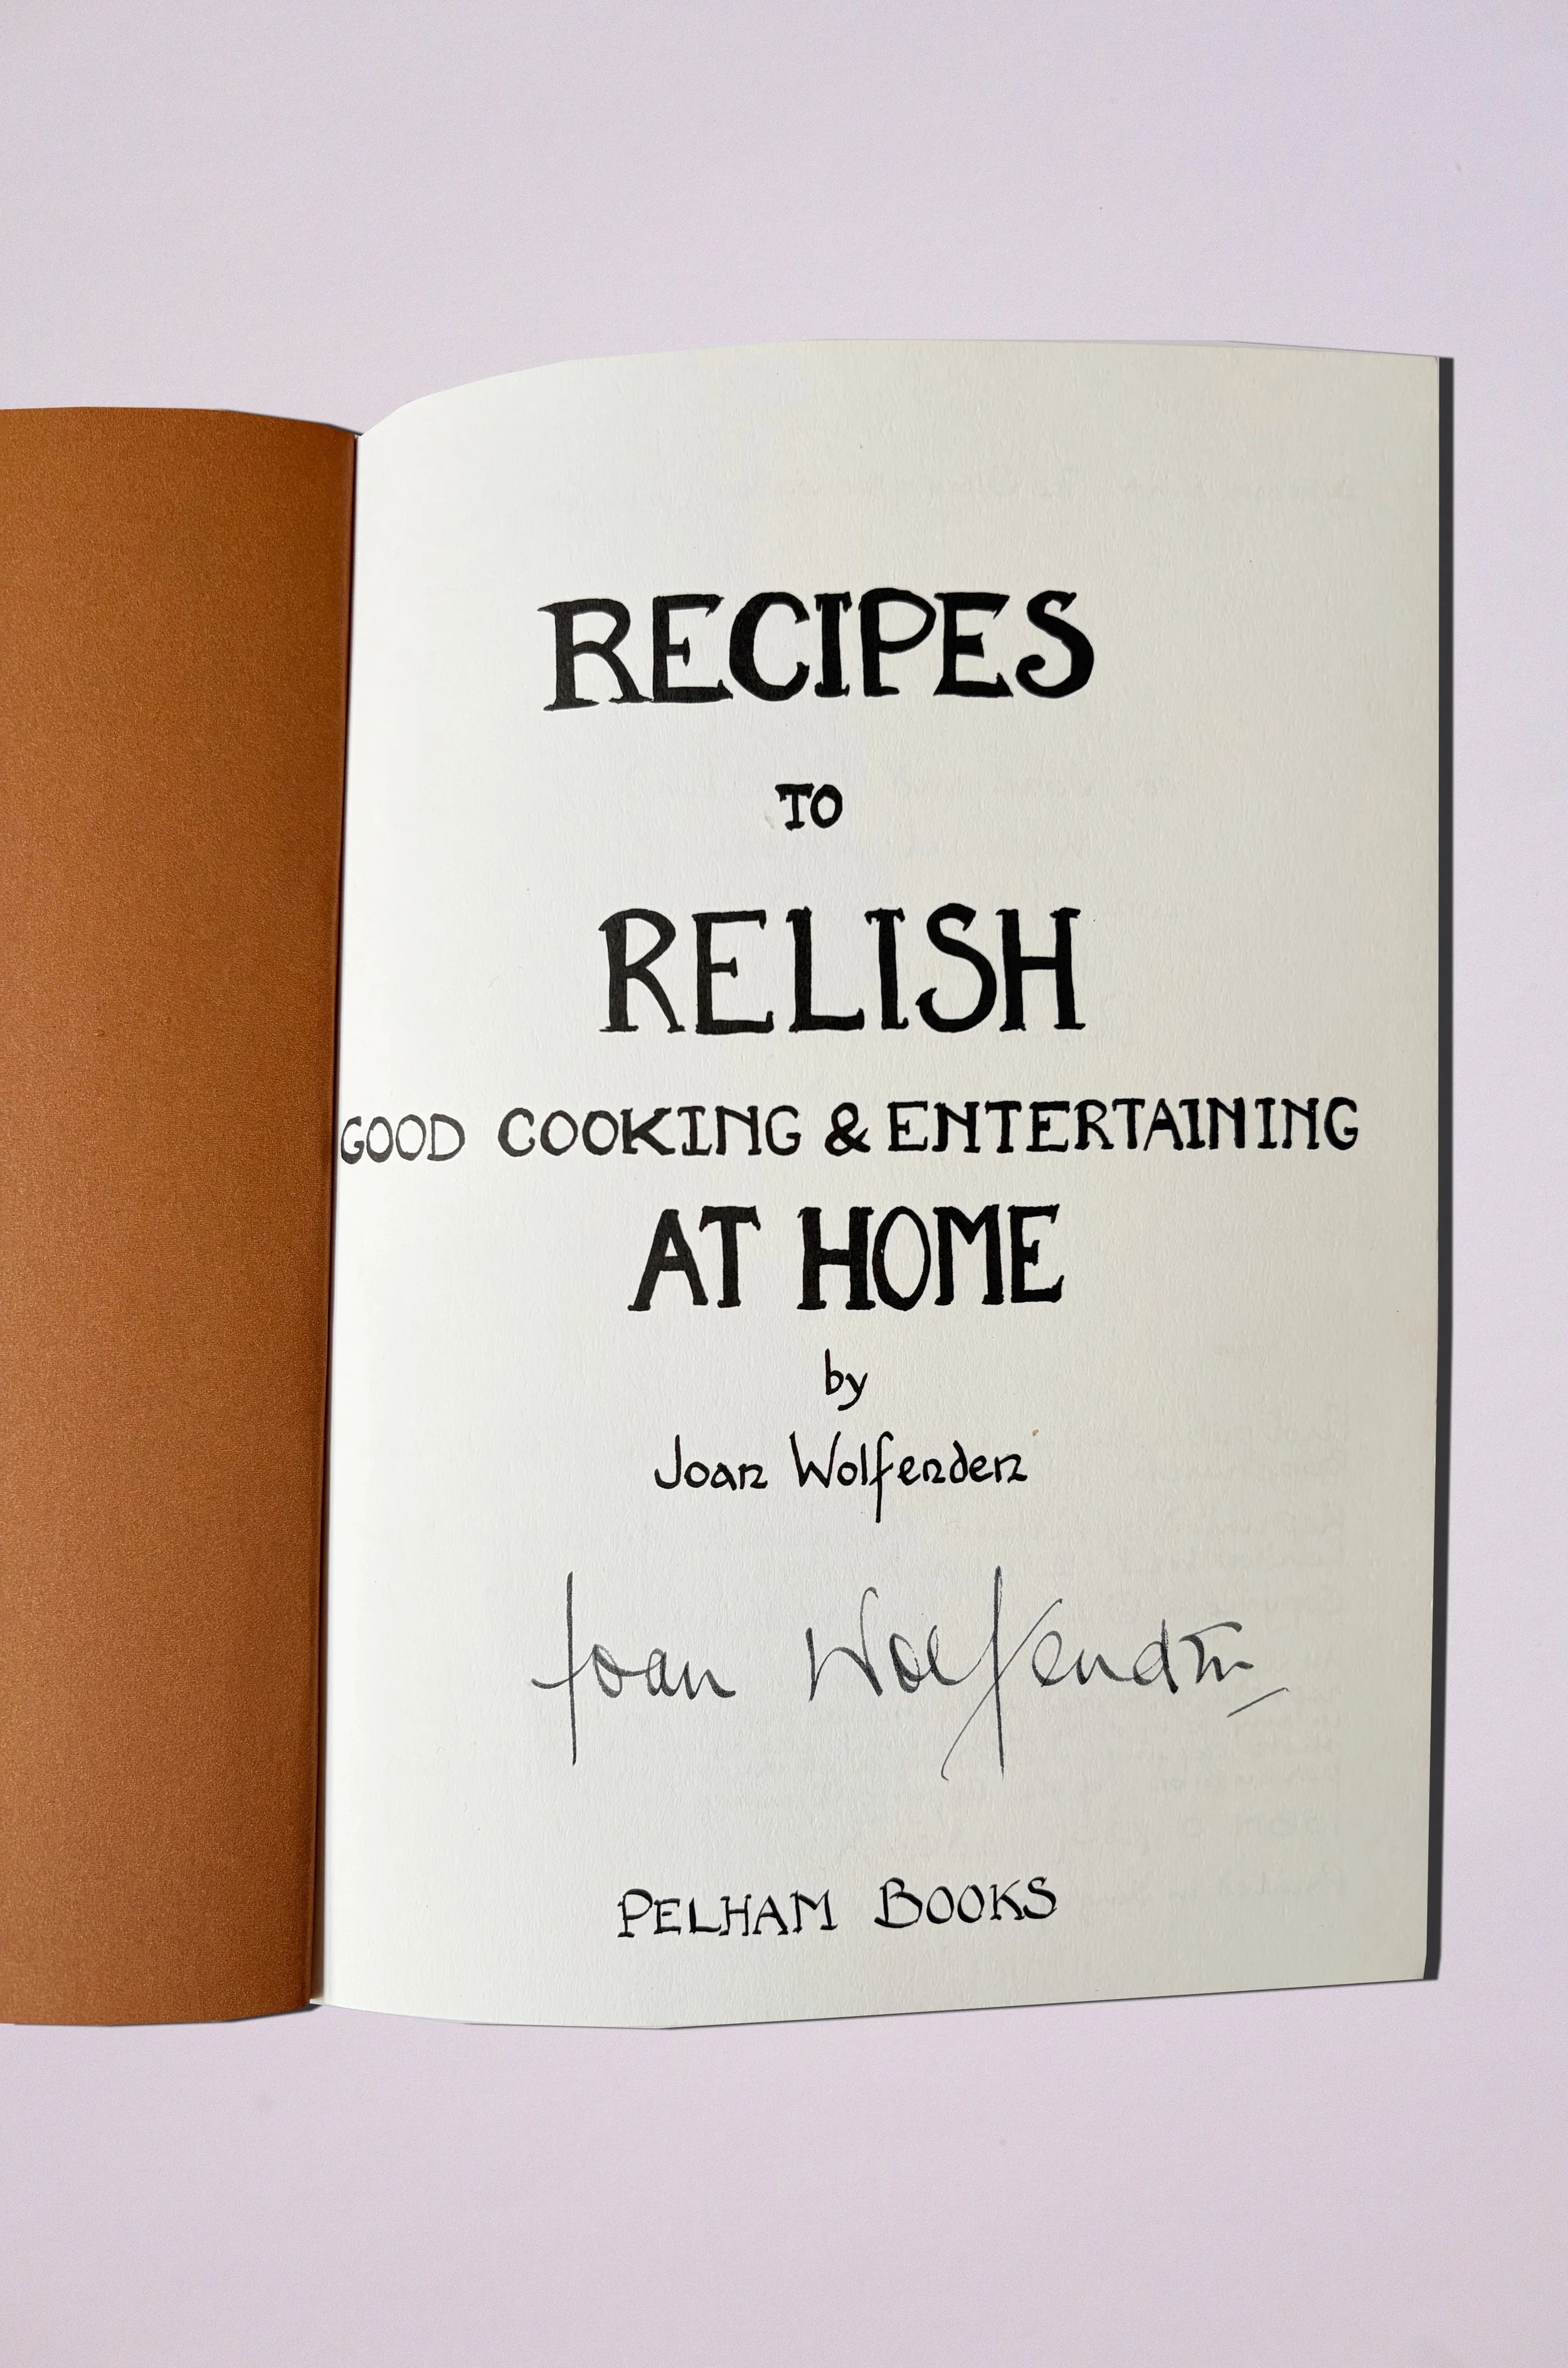 RECIPES
TO
RELISH
GOOD COOKING & ENTERTAINING
AT HOME
by
Joan Wolfenden
Joan Wolfenden
PELHAM BOOKS